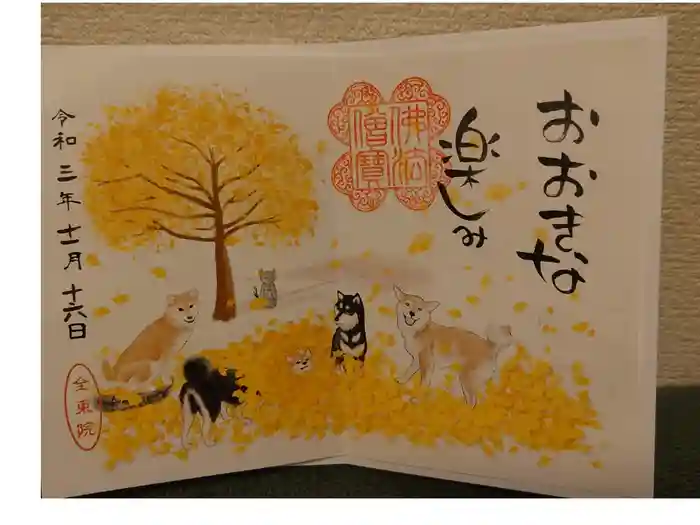 おおきな
楽しみ
佛法
僧寶
令和三年十一月十六日
全東院